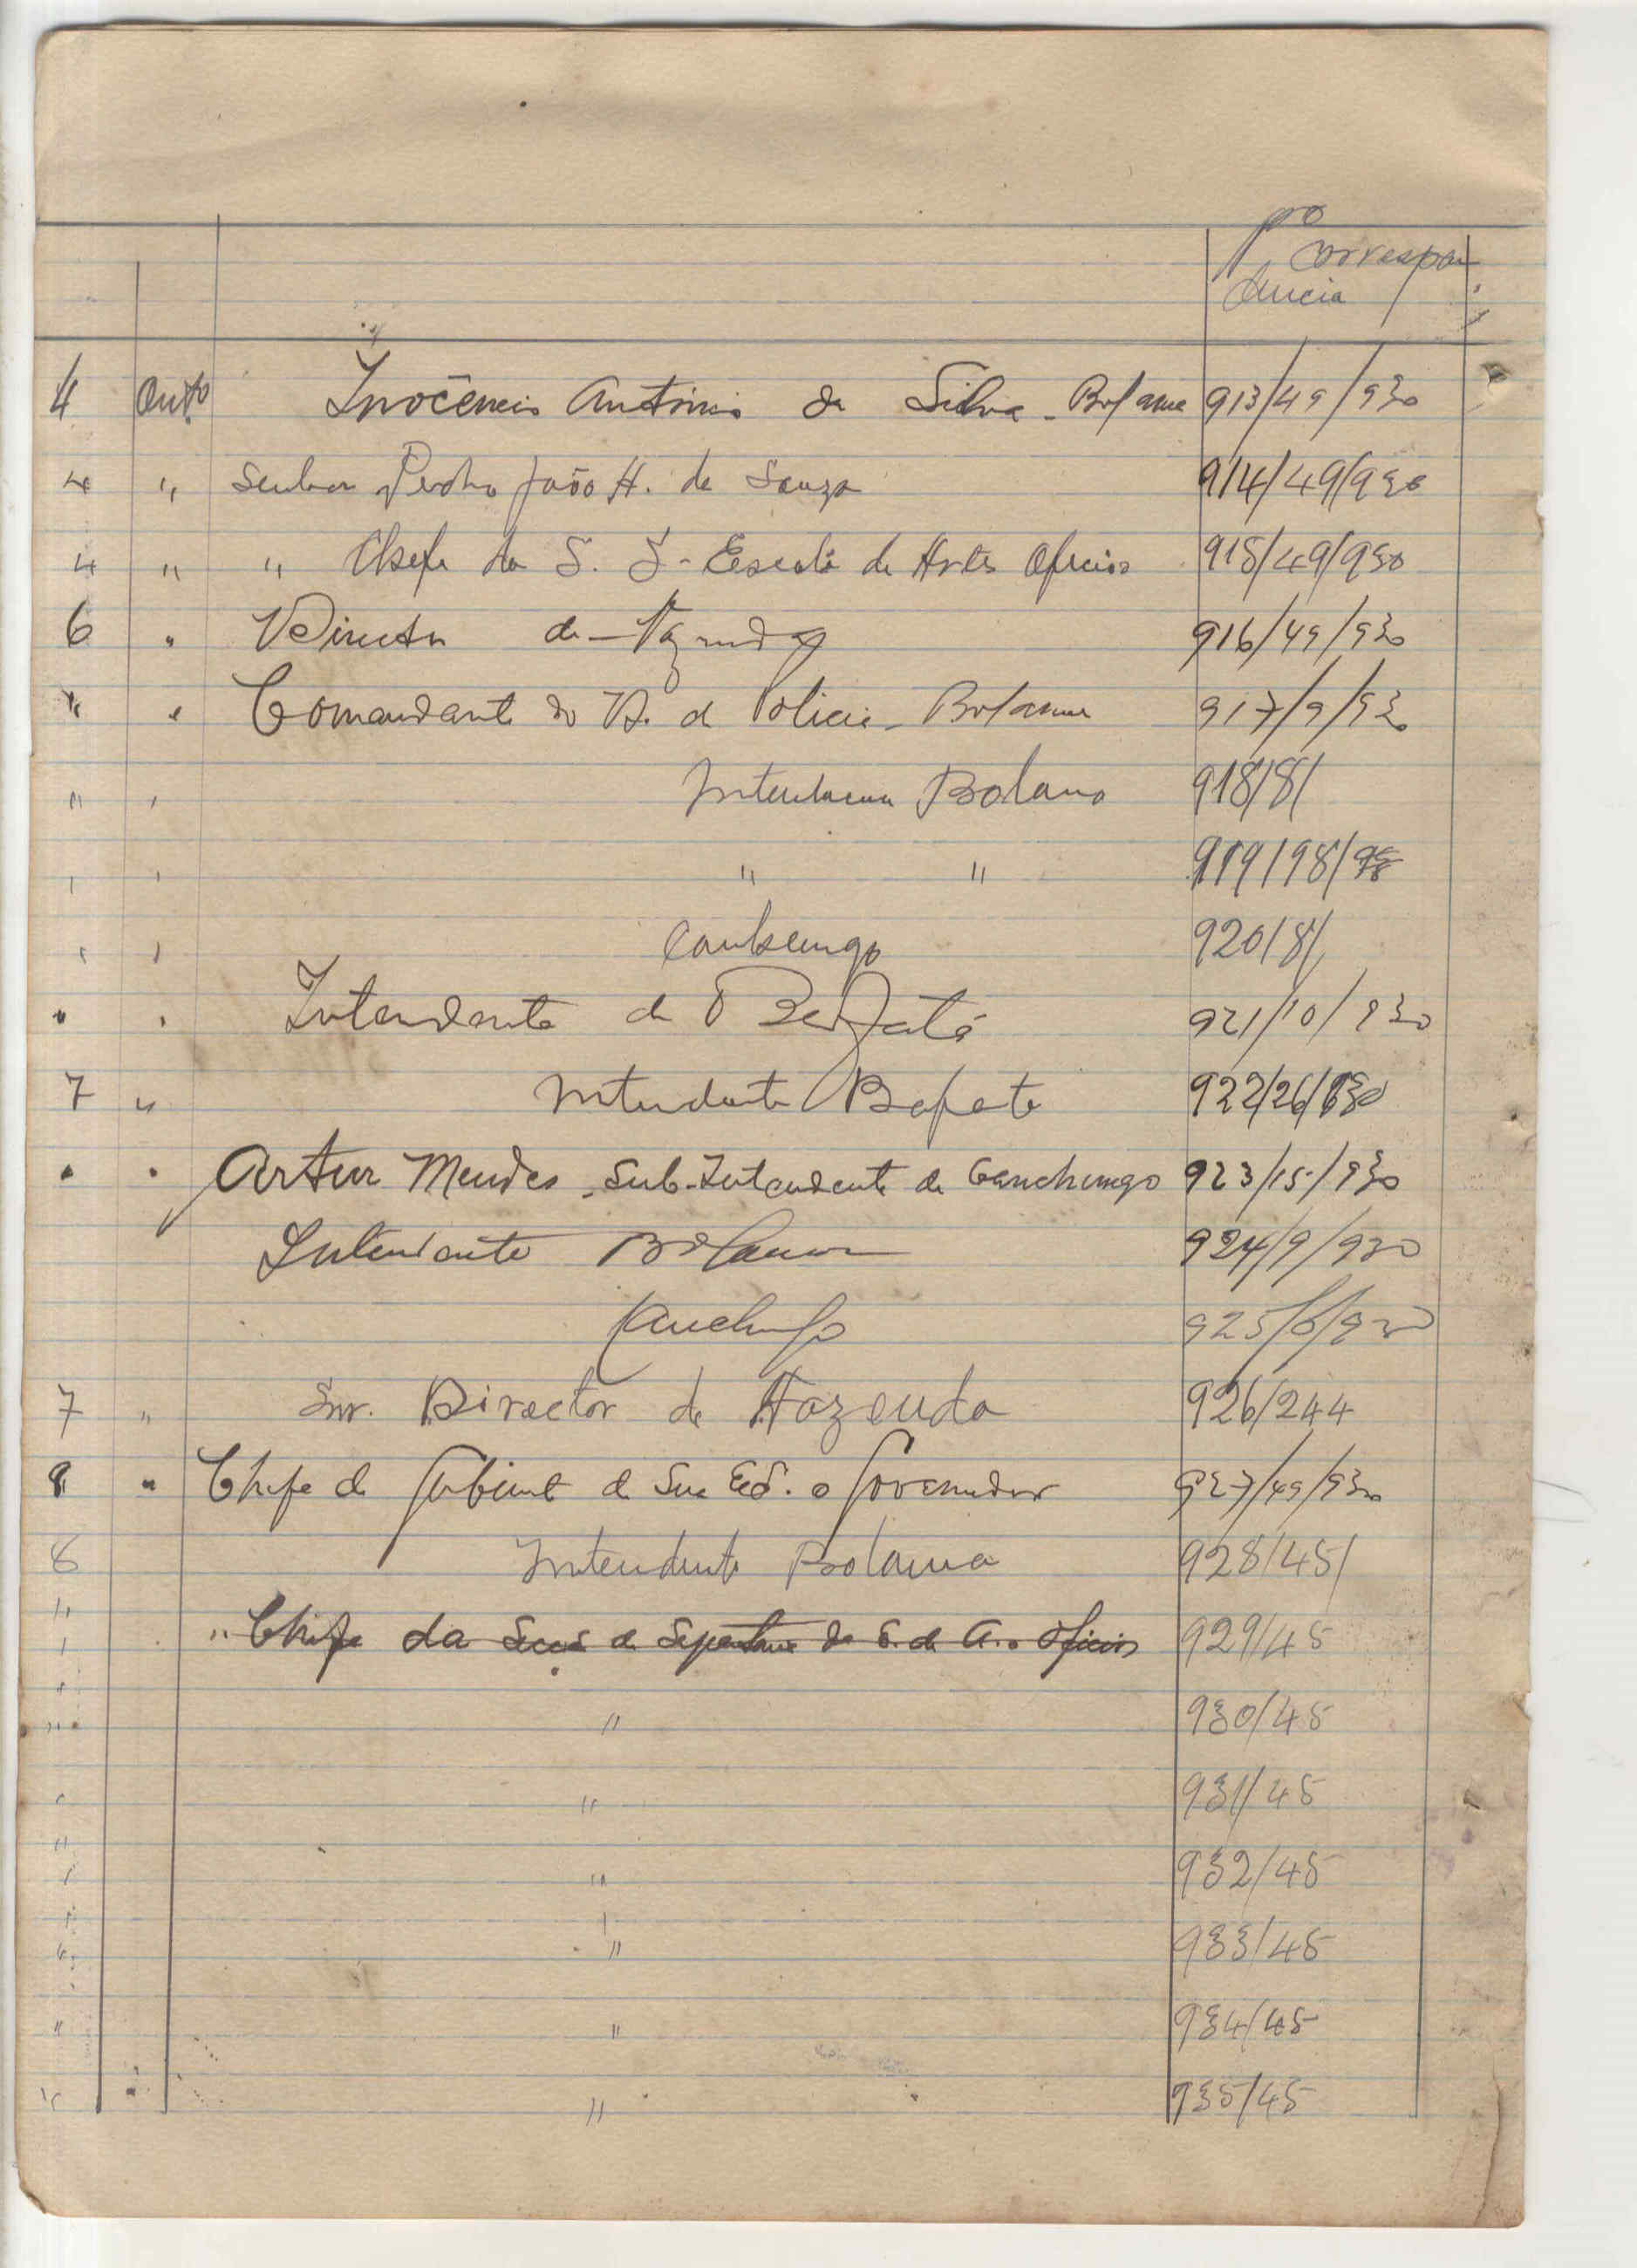 Nº Correspon
dencia
4 Outº Inocêncio António da Silva - Bolama 913/49/930
4 " Senhor Pedro João H. de Souza 914/49/930
4 " " Chefe da S. S - Escola de Artes Oficios 915/49/930
6 " Director de Fazenda 916/49/930
" " Comandante do D. de Policia - Bolama 917/9/930
" " Intendencia Bolama 918/8/
" " " " 919/98/
" " Canhungo 920/8/
" " Intendente de Bafatá 921/10/930
7 " Intendente Bafata 922/26/930
" " Artur Mendes - Sub-Intendente de Canchungo 923/15/930
Intendente Bolama 924/9/930
Canchungo 925/6/930
7 " Snr. Director de Fazenda 926/244
8 " Chefe de Gabinet de Sua Exª. o Governador 927/49/930
8 Intendente Bolama 928/45/
" " Chefe da de da E. de A. e Oficios 929/45
" " 930/45
" " 931/45
" " 932/45
" " 933/45
" " 934/45
" " 935/45